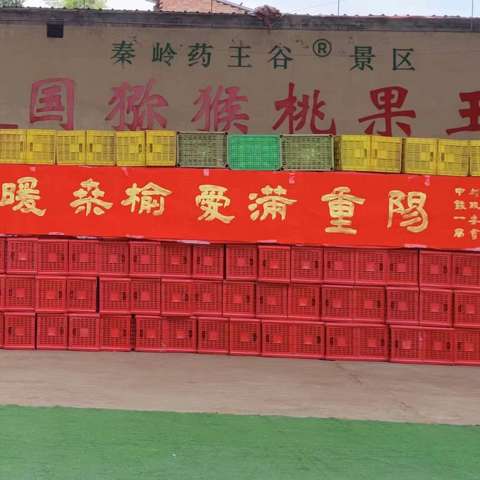 秦岭药王谷®景区
国猕猴桃果王
暖桑榆愛滿重陽